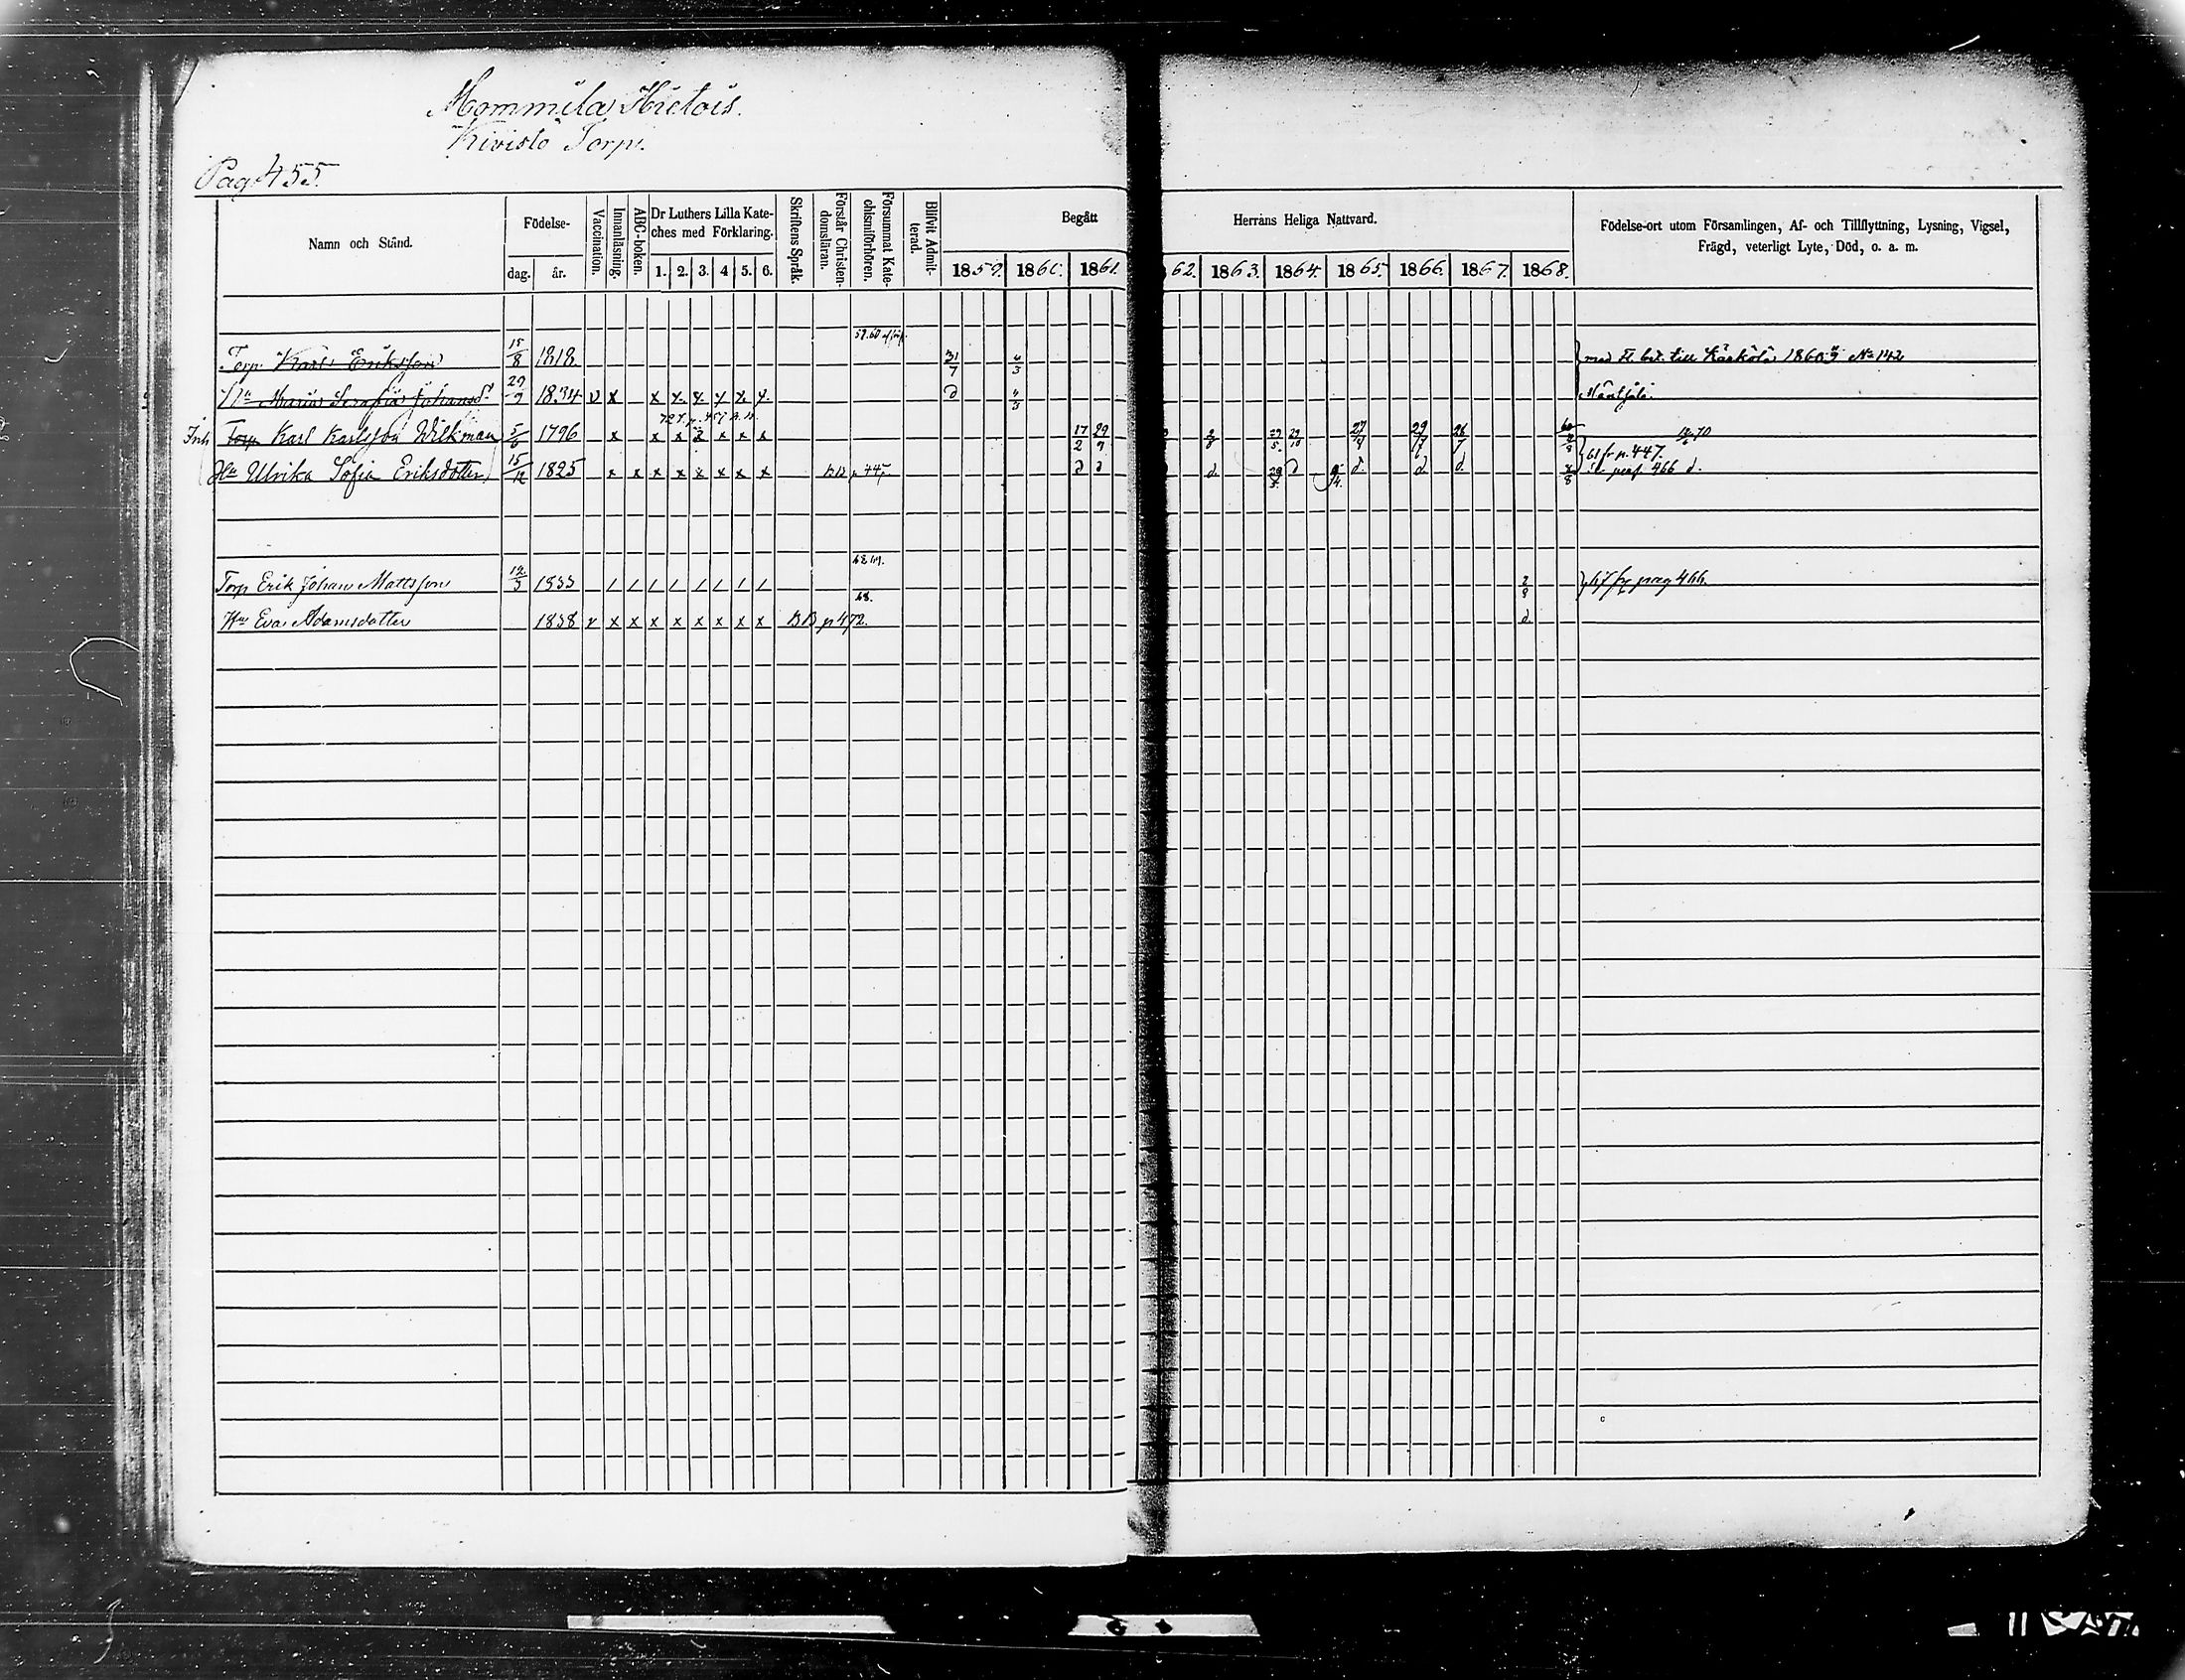 Mommila Hietois.
Kivistö Torp.
Pag 455.
Namn och Stånd.
Födelse-
dag.
år.
Vaccination.
Innanläsning.
ABC-boken.
Dr Luthers Lilla Kate-
ches med Förklaring.
1. 2. 3. 4 5. 6.
Skriftens Språk.
Förstår Christen-
domsläran.
Försummat Kate-
chismiförhören.
Blifvit Admit-
terad.
Begått
Herrans Heliga Nattvard.
1859. 1860. 1861. 62. 1863. 1864. 1865. 1866. 1867. 1868.
Födelse-ort utom Församlingen, Af- och Tillflyttning, Lysning, Vigsel,
Frägd, veterligt Lyte, Död, o. a. m.
Torp. Karl Eriksson 15/8 1818. 31/7 4/3 med Fl. bet. till Kärkölä 1860 No 142
Maria Serafia Johansdr 29/9 1834 v x x x x x x x d 4/3 Mäntsälä.
Inh Torp Karl Karlsson Wilkman 5/6 1796 x x x x x x x 17/2 29/9 2/8 29/5 29/10 27/8 29/7 26/7
Hu Ulrika Sofia Eriksdotter 15/12 1825 x x x x x x x x p 445 d d d 29/5 d d d d 61 fr p. 447.
pag. 466 d.
68
Torp Erik Johan Mattsson 12/3 1833 / / / / / / / / / 2/8 67 fr pag 466.
68.
Hu Eva Adamsdotter 1838 v x x x x x x x x BB p 472. d